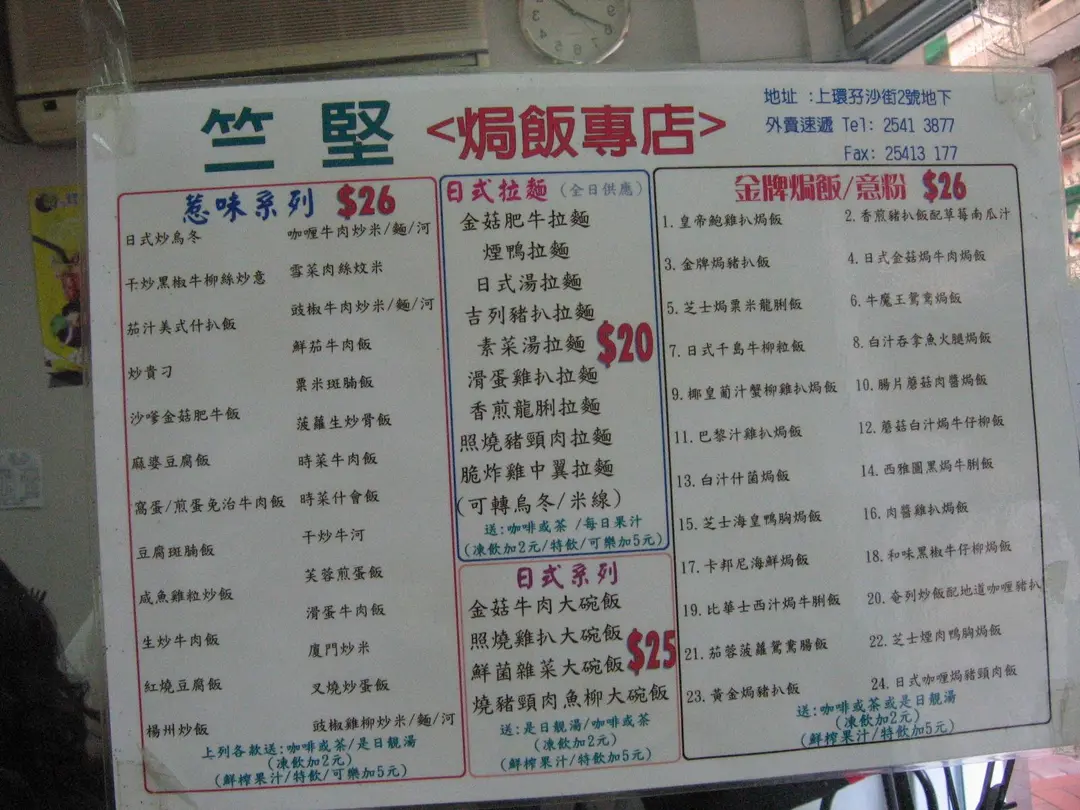 竺堅
<焗飯專店>
地址 :上環孖沙街2號地下
外賣速遞 Tel: 2541 3877
Fax: 25413 177
惹味系列 $26
日式炒烏冬
咖喱牛肉炒米/麵/河
干炒黑椒牛柳絲炒意
雪菜肉絲炆米
豉椒牛肉炒米/麵/河
茄汁美式什扒飯
鮮茄牛肉飯
炒貴刁
粟米斑腩飯
沙嗲金菇肥牛飯
菠蘿生炒骨飯
麻婆豆腐飯
時菜牛肉飯
窩蛋/煎蛋免治牛肉飯
時菜什會飯
豆腐斑腩飯
干炒牛河
芙蓉煎蛋飯
咸魚雞粒炒飯
滑蛋牛肉飯
生炒牛肉飯
廈門炒米
紅燒豆腐飯
叉燒炒蛋飯
楊州炒飯
豉椒雞柳炒米/麵/河
上列各款送:咖啡或茶/是日靚湯
(凍飲加2元)
(鮮榨果汁/特飲/可樂加5元)
日式拉麵 (全日供應)
金菇肥牛拉麵
煙鴨拉麵
日式湯拉麵
吉列豬扒拉麵
素菜湯拉麵
$20
滑蛋雞扒拉麵
香煎龍脷拉麵
照燒豬頸肉拉麵
脆炸雞中翼拉麵
(可轉烏冬/米線)
送:咖啡或茶 /每日果汁
(凍飲加2元/特飲/可樂加5元)
日式系列
金菇牛肉大碗飯
照燒雞扒大碗飯
$25
鮮菌雜菜大碗飯
燒豬頸肉魚柳大碗飯
送:是日靚湯/咖啡或茶
(凍飲加2元)
(鮮榨果汁/特飲加5元)
金牌焗飯/意粉 $26
1.皇帝鮑雞扒焗飯
2.香煎豬扒飯配草莓南瓜汁
3.金牌焗豬扒飯
4.日式金菇焗牛肉焗飯
5.芝士焗粟米龍脷飯
6.牛魔王鴛鴦焗飯
7.日式千島牛柳粒飯
8.白汁吞拿魚火腿焗飯
9.椰皇葡汁蟹柳雞扒焗飯
10.腸片蘑菇肉醬焗飯
11.巴黎汁雞扒焗飯
12.蘑菇白汁焗牛仔柳飯
13.白汁什菌焗飯
14.西雅圖黑焗牛脷飯
15.芝士海皇鴨胸焗飯
16.肉醬雞扒焗飯
17.卡邦尼海鮮焗飯
18.和味黑椒牛仔柳焗飯
19.比華士西汁焗牛脷飯
20.奄列炒飯配地道咖喱豬扒
21.茄蓉菠蘿鴛鴦腸飯
22.芝士煙肉鴨胸焗飯
23.黃金焗豬扒飯
24.日式咖喱焗豬頸肉飯
送:咖啡或茶或是日靚湯
(凍飲加2元)
(鮮榨果汁/特飲加5元)